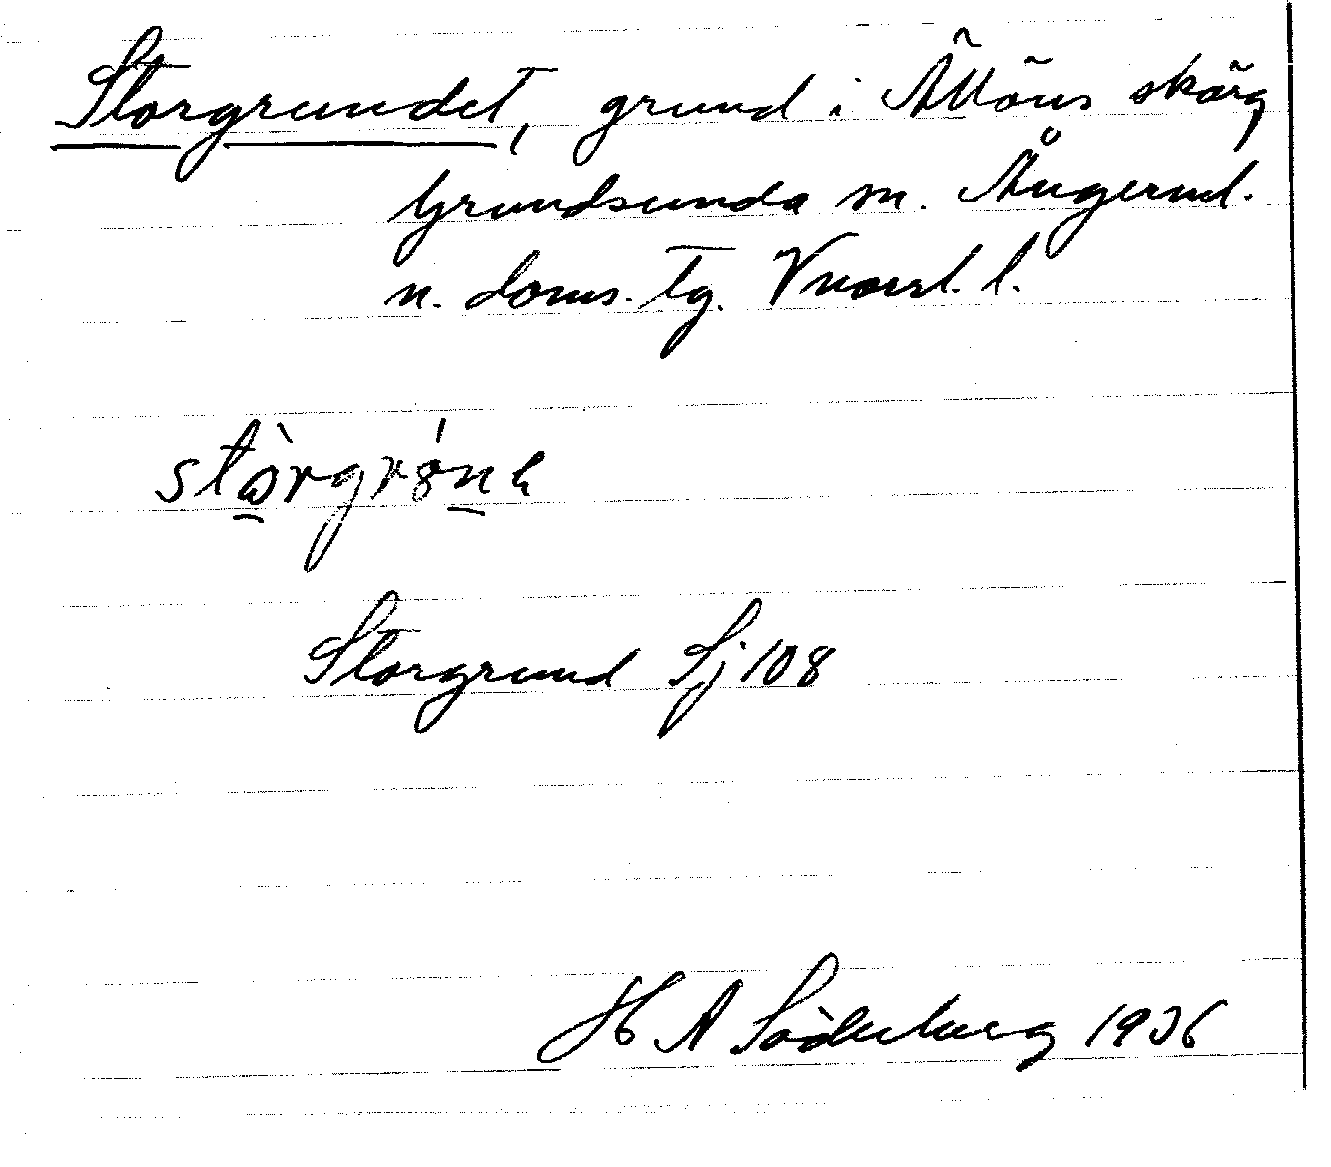 Storgrundet, grund i Ällöns skärg
Grundsunda sn. Ångerml.
n. doms. tg. Vnorrl. l.
stòrgrón
Storgrund Sj 108
H A Söderberg 1936